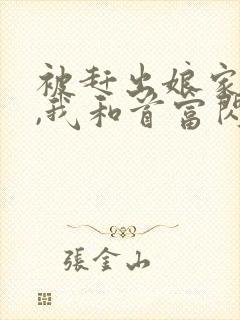 被赶出娘家
,我和首富闪
張金山